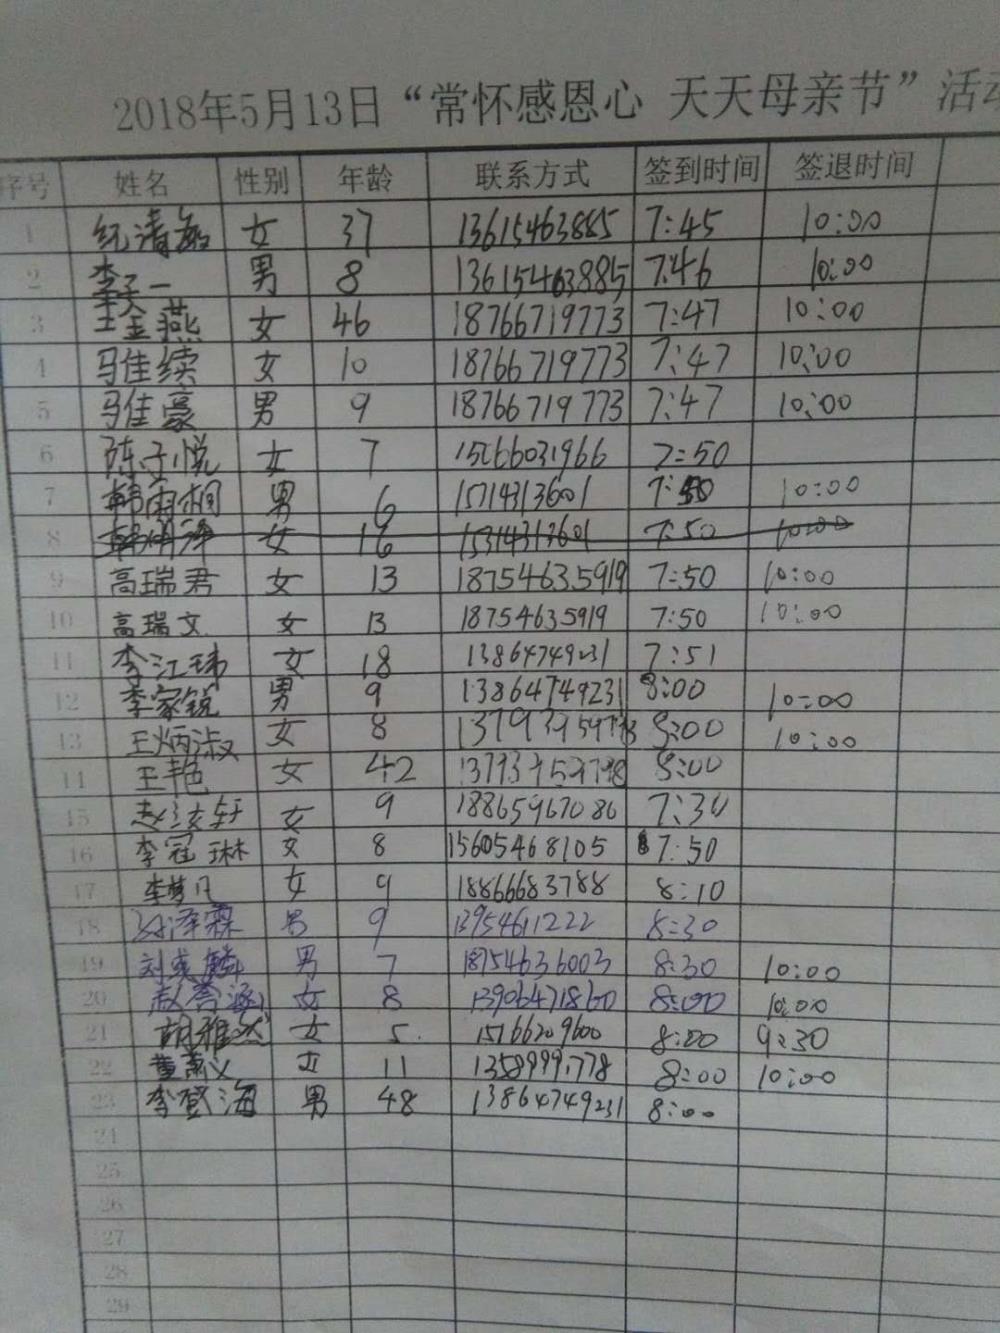 2018年5月13日“常怀感恩心 天天母亲节”活动
序号 姓名 性别 年龄 联系方式 签到时间 签退时间
1 纪清 女 37 13615463885 7:45 10:00
2 李子一 男 8 13615463885 7:46 10:00
3 金燕 女 46 18766719773 7:47 10:00
4 马佳续 女 10 18766719773 7:47 10:00
5 马佳豪 男 9 18766719773 7:47 10:00
6 陈子悦 女 7 15266031966 7:50
7 韩雨桐 男 6 15714313601 7:50 10:00
8 女 16 15314313601 7:50 10:00
9 高瑞君 女 13 18754635919 7:50 10:00
10 高瑞文 女 13 18754635919 7:50 10:00
11 李江玮 女 18 13864749231 7:51
12 李家锐 男 9 13864749231 8:00 10:00
13 王炳淑 女 8 8:00 10:00
14 王艳 女 42 8:00
15 赵 轩 女 9 18865967086 7:30
16 李冠琳 女 8 15605468105 7:50
17 李梦凡 女 9 18866683788 8:10
18 泽霖 男 9 13954611222 8:30
19 刘 麟 男 7 18754636003 8:30 10:00
20 赵 涵 女 8 13906471860 8:00 10:00
21 胡雅然 女 5 15766209600 8:00 9:30
22 女 11 8:00 10:00
23 李登海 男 48 13864749231 8:00
24
25
26
27
28
29